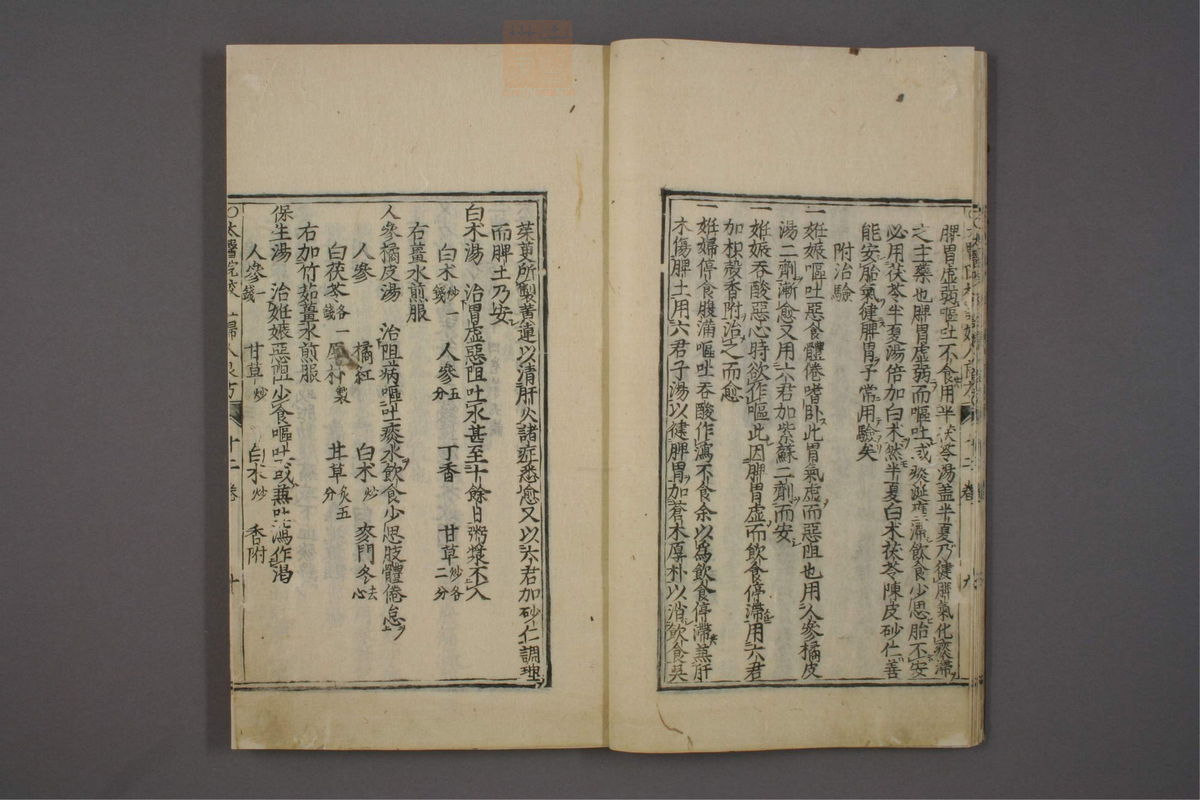 脾胃虛弱嘔吐不食用半茯苓湯盖半夏乃健脾氣化痰滯
之主藥也脾胃虛弱而嘔吐或痰涎壅滯飲食少思胎不安
必用茯苓半夏湯倍加白朮然半夏白朮茯苓陳皮砂仁善
能安胎氣健脾胃予常用驗矣
附治驗
一妊娠嘔吐惡食體倦嗜卧此胃氣虛而惡阻也用人參橘皮
湯二劑漸愈又用六君加紫蘇二劑而安
一妊娠吞酸惡心時欲作嘔此因脾胃虛而飲食停滯用六君
加枳殼香附治之而愈
一妊婦停食腹滿嘔吐吞酸作瀉不食余以為飲食停滯蕪肝
木傷脾土用六君子湯以健脾胃加蒼朮厚朴以消飲食吳
茱萸所製黃連以清肝火諸症悉愈又以六君加砂仁調理
而脾土乃安
白朮湯 治胃虛惡阻吐水甚至十餘日粥漿不入
白朮炒一錢 人參五分 丁香 甘草炒各二分
右薑水煎服
人參橘皮湯 治阻病嘔吐痰水飲食少思肢體倦怠
人參 橘紅 白朮炒 麥門冬去心
白茯苓各一錢 厚朴製 甘草炙五分
右加竹茹薑水煎服
保生湯 治妊娠惡阻少食嘔吐或蕪吐瀉作渴
人參一錢 甘草炒 白朮炒 香附
○太醫院校 婦人良方 十二卷 十